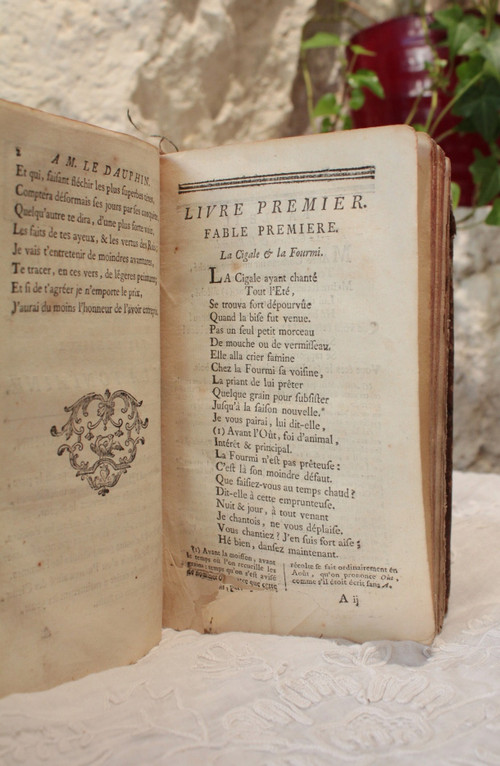 2
A M. LE DAUPHIN.
Et qui, faisant fléchir les plus superbes têtes,
Comptera désormais ses jours par ses conquêtes,
Quelqu'autre te dira, d'une plus forte voix,
Les faits de tes ayeux, & les vertus des Rois;
Je vais t'entretenir de moindres avantures,
Te tracer, en ces vers, de légeres peintures;
Et si de t'agréer je n'emporte le prix,
J'aurai du moins l'honneur de l'avoir entrepris.
LIVRE PREMIER.
FABLE PREMIERE.
La Cigale & la Fourmi.
LA Cigale ayant chanté
Tout l'Eté,
Se trouva fort dépourvûe
Quand la bise fut venue.
Pas un seul petit morceau
De mouche ou de vermisseau.
Elle alla crier famine
Chez la Fourmi sa voisine,
La priant de lui prêter
Quelque grain pour subsister
Jusqu'à la saison nouvelle.
Je vous pairai, lui dit-elle,
(1) Avant l'Oût, foi d'animal,
Intérêt & principal.
La Fourmi n'est pas prêteuse:
C'est là son moindre défaut.
Que faisiez-vous au temps chaud?
Dit-elle à cette emprunteuse.
Nuit & jour, à tout venant
Je chantois, ne vous déplaise.
Vous chantiez? J'en suis fort aise;
Hé bien, dansez maintenant.
(1) Avant la moisson, avant
le temps où l'on recueille les
grains: temps qu'on s'est avisé
que cette
récolte se fait ordinairement en
Août, qu'on prononce Oût,
comme s'il étoit écrit sans A.
A ij